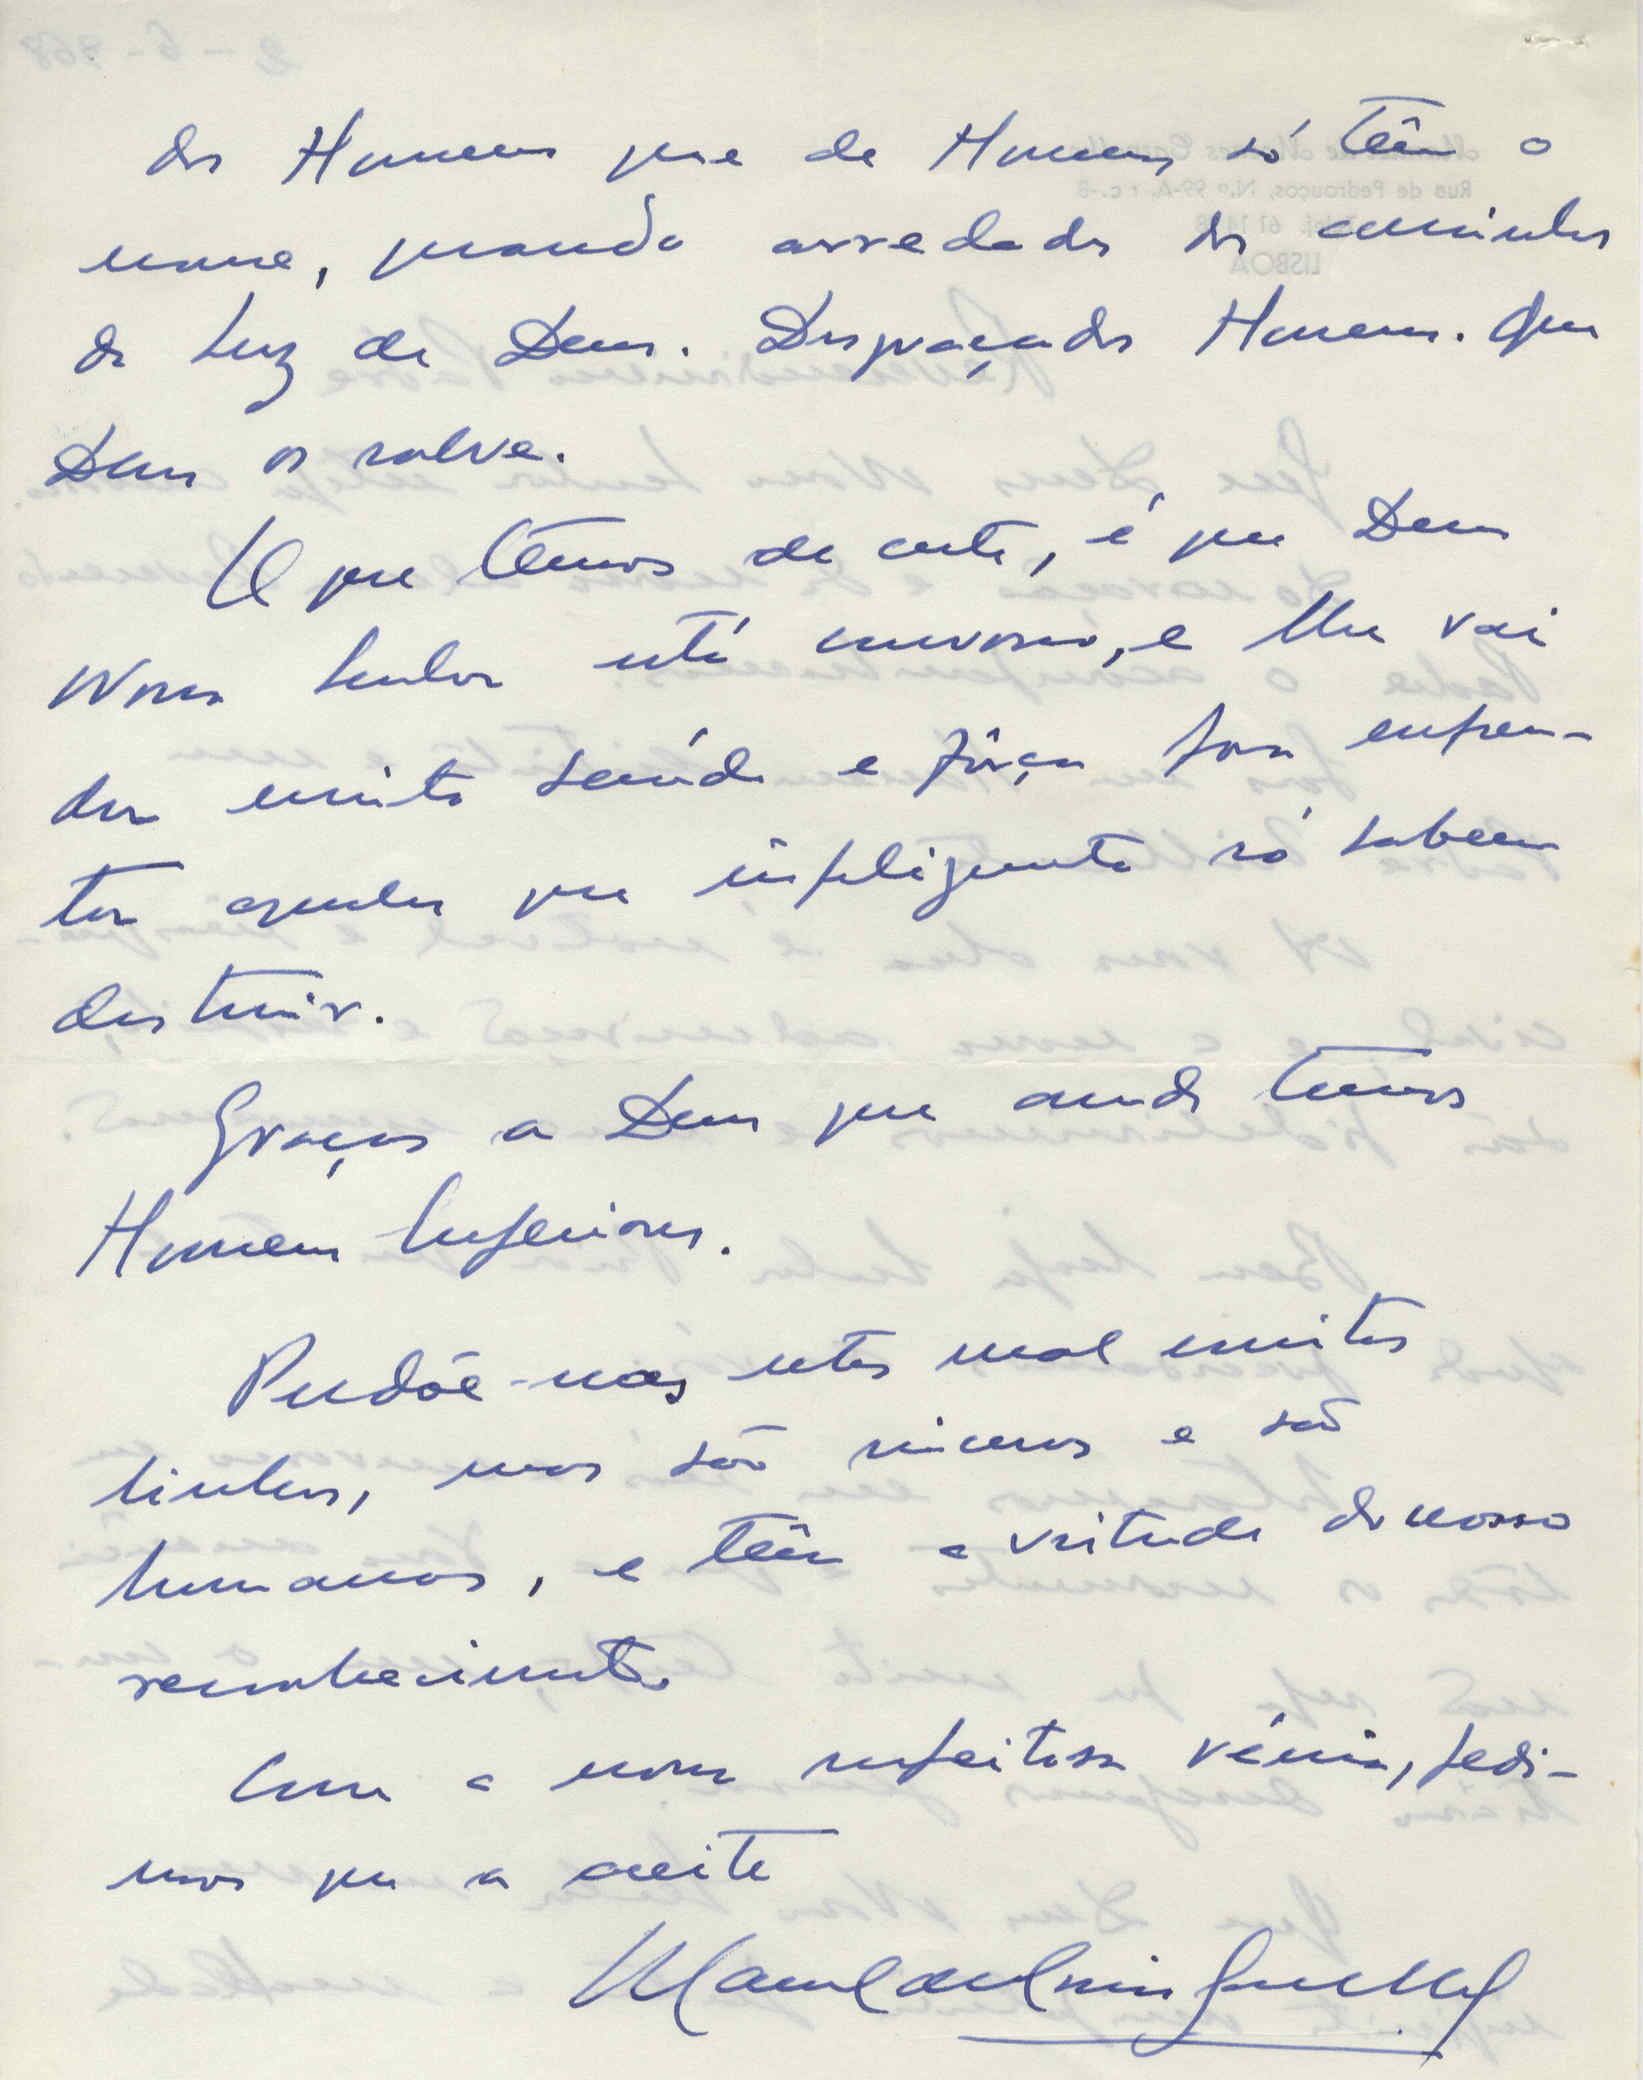 dos Homens que de Homens só têem o
nome, quando arredados dos caminhos
da Luz de Deus. Desgraçados Homens. Que
Deus os salve.
O que têmos de certo, é que Deus
Nosso Senhor está comvosco, e lhe vai
dar muita saúde e fôrça para enfren-
tar aqueles que infelizmente só sabem
destruir.
Graças a Deus que ainda temos
Homens Superiores.
Perdôe-nos estas mal escritas
linhas, mas são sinceras e são
humanas, e têem a virtude do nosso
reconhecimento.
Com a nossa respeitosa vénia, pedi-
mos que a aceite
Manuel